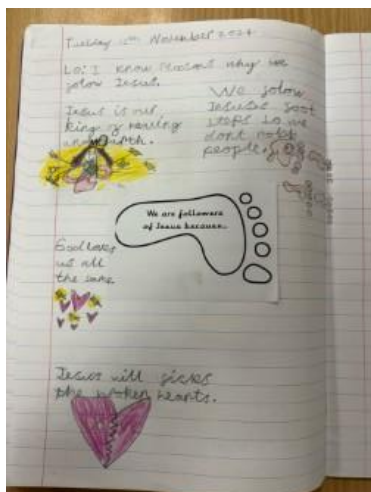 Tuesday November 2024
Lo: I know reasons why we
folow Jesus.
Jesus is our
king of
We folow
Jesuses foot
steps so we
dont
people.
We are followers
of Jesus because..
God loves
us all
the same.
Jesus will
the broken hearts.